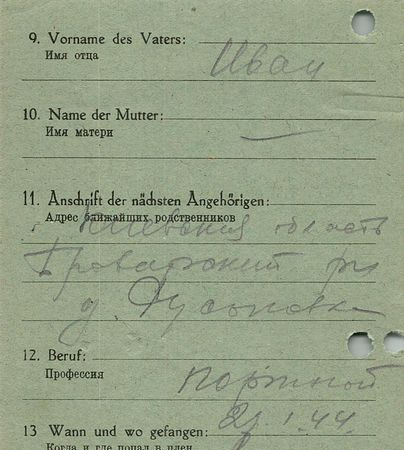 9. Vorname des Vaters:
Имя отца
Иван
10. Name der Mutter:
Имя матери
—
11. Anschrift der nächsten Angehörigen:
Адрес ближайших родственников
Киевская область
Броварский рн
д. Русановка
12. Beruf:
Профессия
портной
13 Wann und wo gefangen:
29.1.44.
Когда и где попал в плен